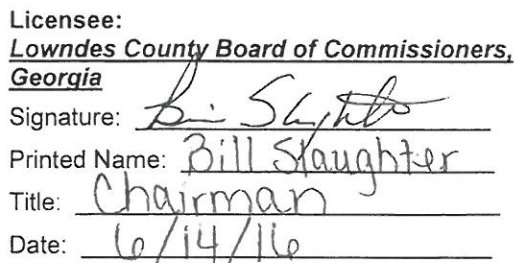 Licensee:
Lowndes County Board of Commissioners,
Georgia
Signature: Bill Slaughter
Printed Name: Bill Slaughter
Title: Chairman
Date: 6/14/16